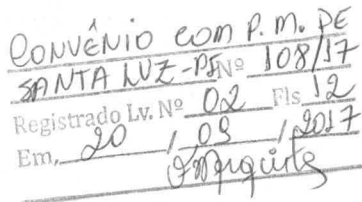 CONVÊNIO COM P.M. DE
SANTA LUZ-PI Nº 108/17
Registrado Lv. Nº 02 Fls 12
Em, 20 / 09 / 2017